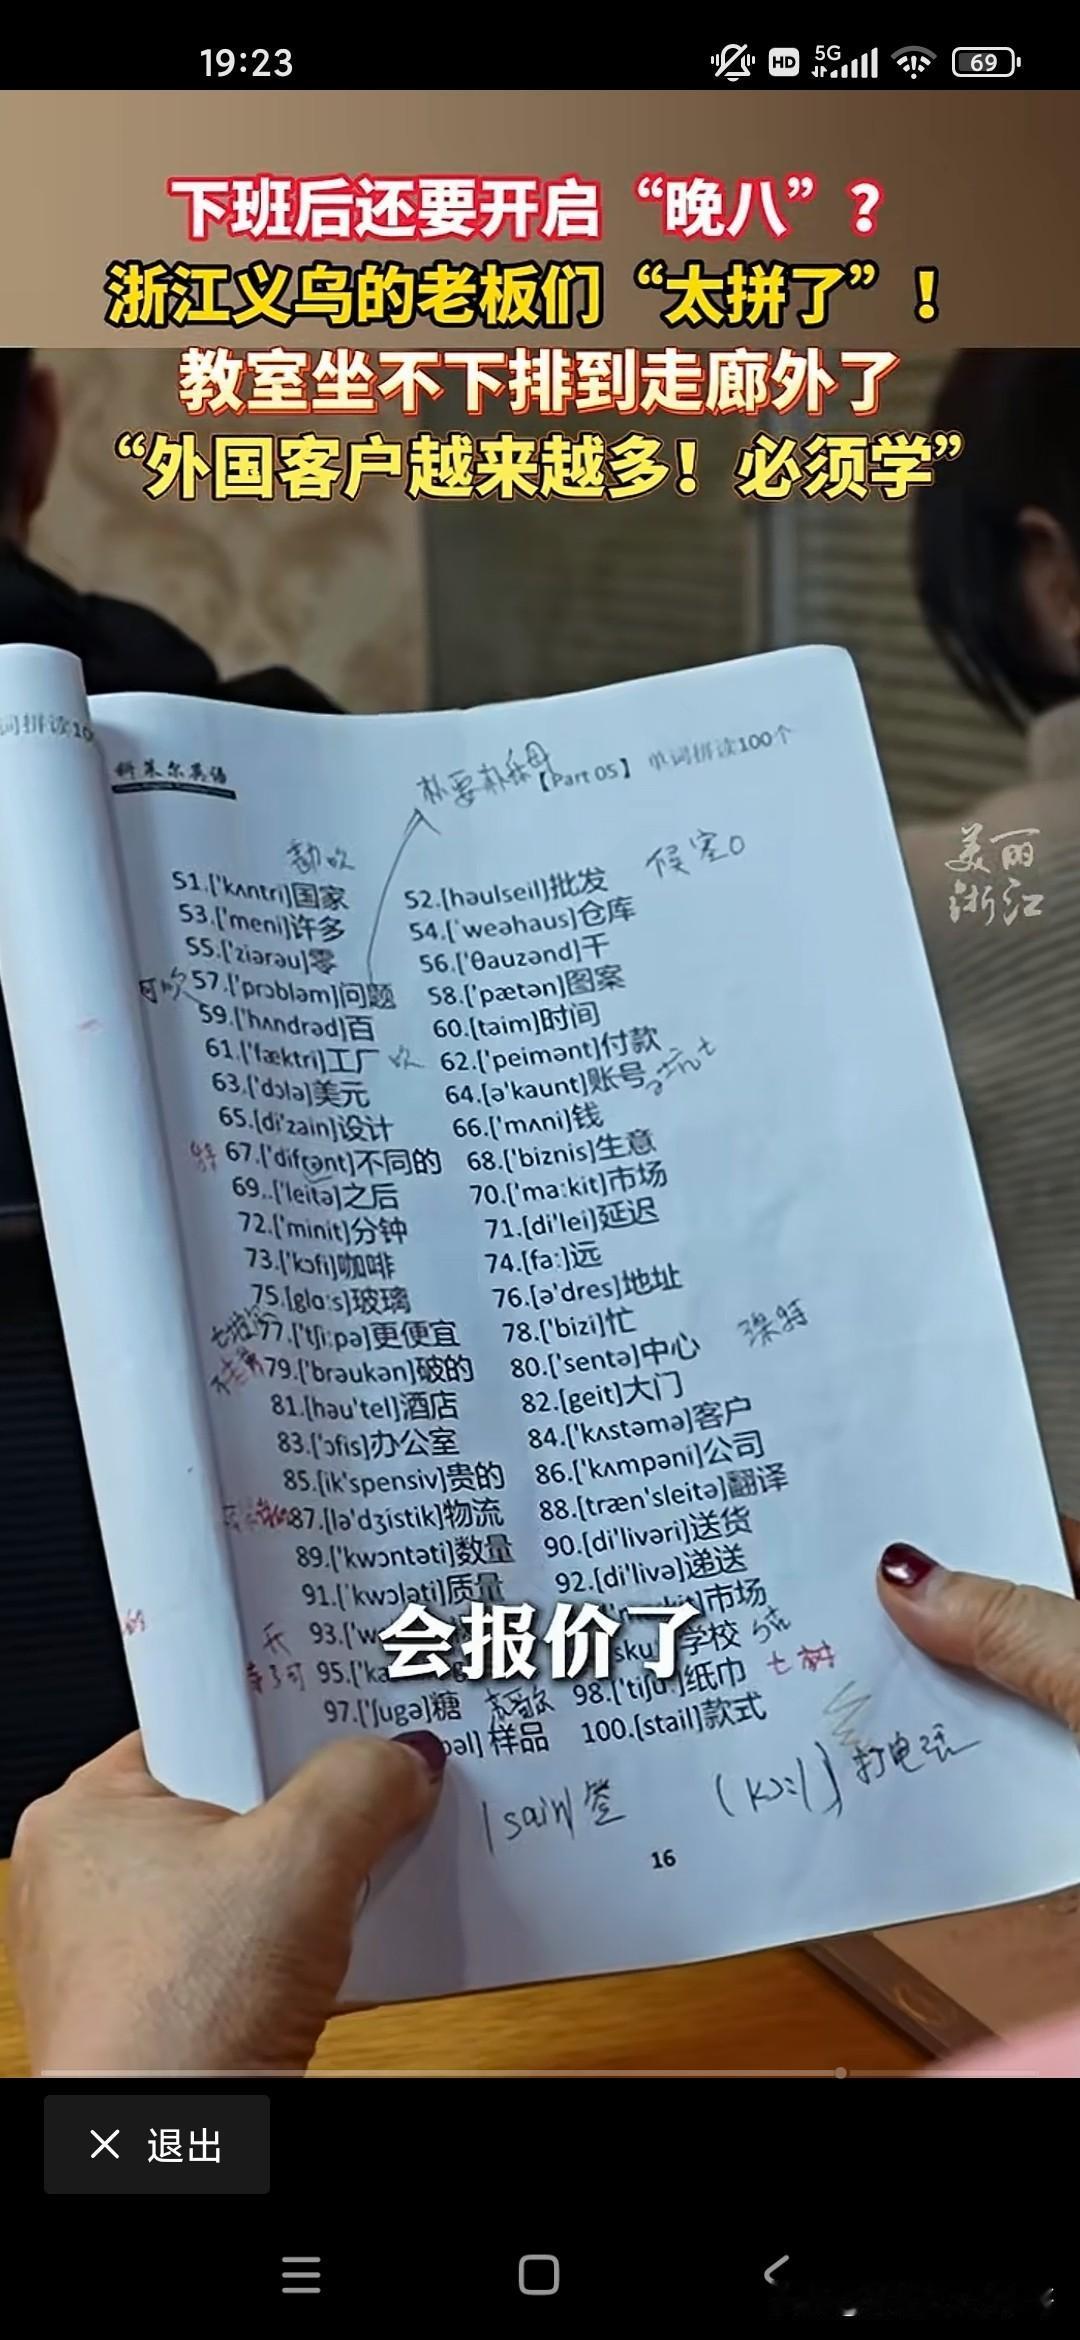 19:23
HD 5G 69
下班后还要开启“晚八”?
浙江义乌的老板们“太拼了”!
教室坐不下排到走廊外了
“外国客户越来越多!必须学”
词拼读10
科莱尔英语
【Part 05】 单词拼读100个
美丽
浙江
51.['kʌntri]国家 52.[həulseil]批发
53.['meni]许多 54.['weəhaus]仓库
55.['ziərəu]零 56.['θauzənd]千
57.['prɔbləm]问题 58.['pætən]图案
59.['hʌndrəd]百 60.[taim]时间
61.['fæktri]工厂 吹 62.['peimənt]付款
63.['dɔlə]美元 64.[ə'kaunt]账号
65.[di'zain]设计 66.['mʌni]钱
67.['difrənt]不同的 68.['biznis]生意
69..['leitə]之后 70.['ma:kit]市场
72.['minit]分钟 71.[di'lei]延迟
73.['kɔfi]咖啡 74.[fa:]远
75.[glɑ:s]玻璃 76.[ə'dres]地址
77.['tʃi:pə]更便宜 78.['bizi]忙
79.['brəukən]破的 80.['sentə]中心
81.[həu'tel]酒店 82.[geit]大门
83.['ɔfis]办公室 84.['kʌstəmə]客户
85.[ik'spensiv]贵的 86.['kʌmpəni]公司
87.[lə'dʒistik]物流 88.[træn'sleitə]翻译
89.['kwɔntəti]数量 90.[di'livəri]送货
91.['kwɔləti]质量 92.[di'livə]递送
93.['w 市场
会报价了
95.['kæ sku 学校
97.['ʃugə]糖 98.['tiʃu:]纸巾 七树
pəl]样品 100.[stail]款式
[sain]签 (kɔ:l) 打电话
16
退出